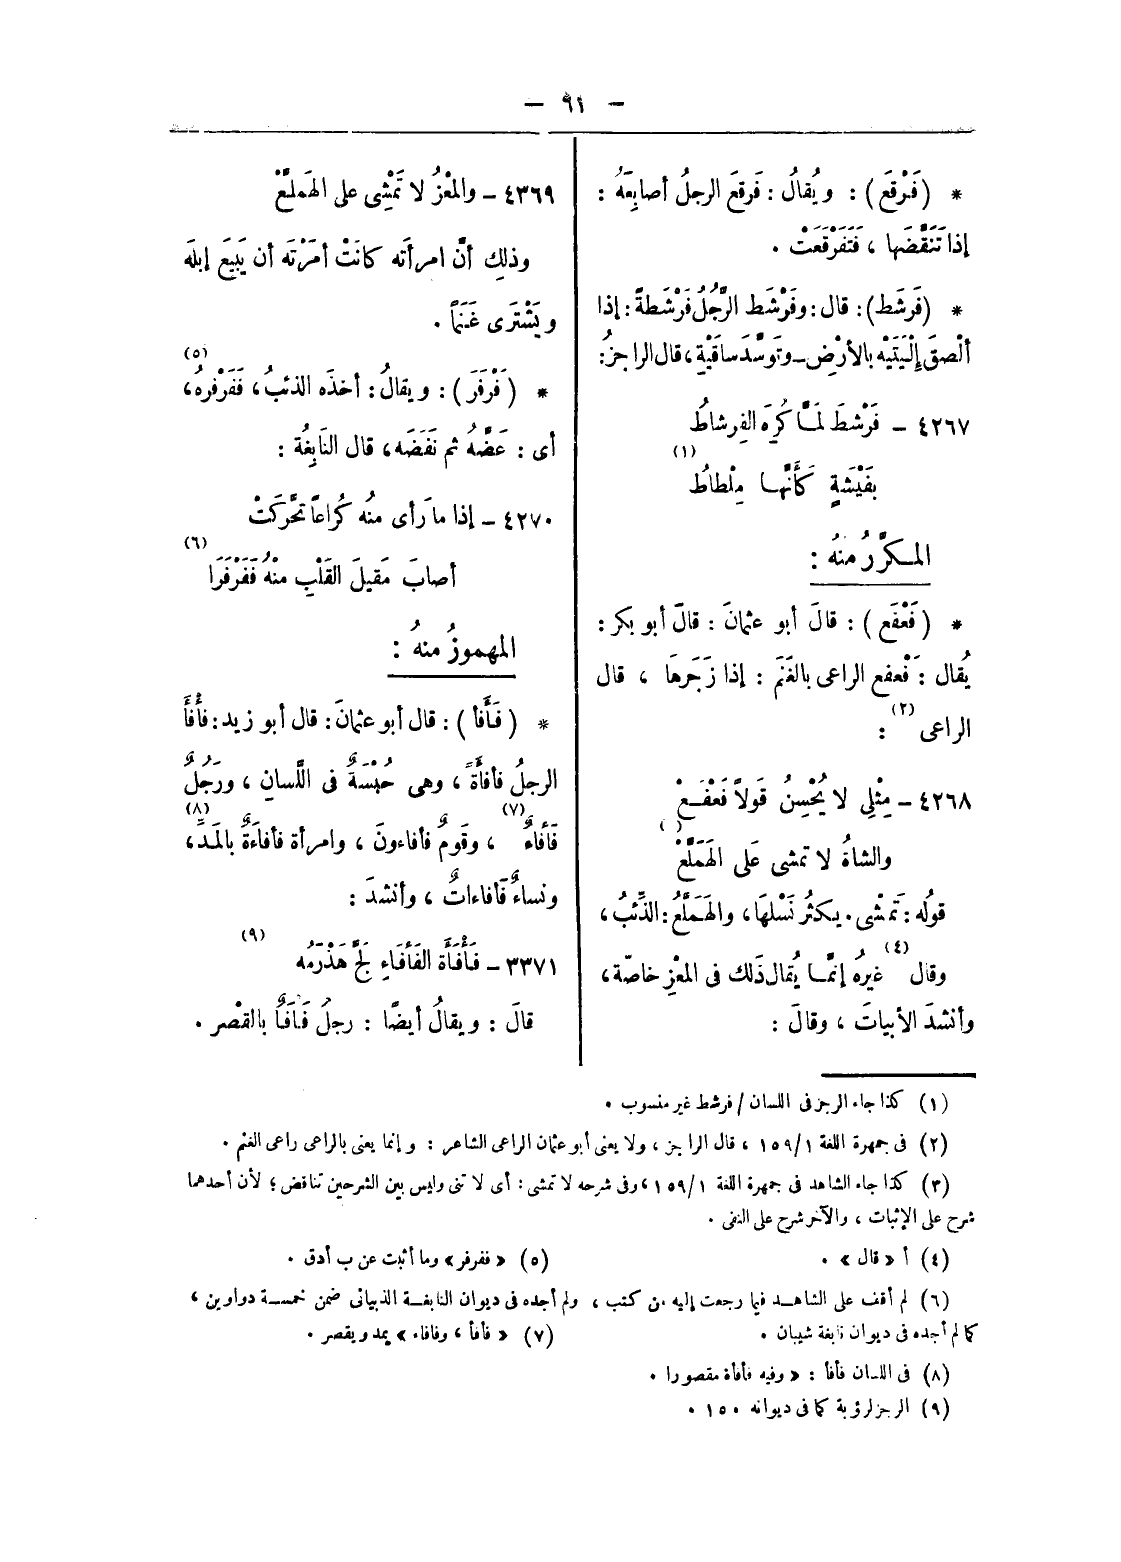 — ٩١ —
* (فَرْقَعَ) : ويُقالُ : فَرقعَ الرجلُ أصابِعَهُ :
إذا تَنَقَّضَها ، فَتَفَرْقَعَتْ .
* (فَرشَط) : قال : وفَرْشَط الرَّجُلُ فَرْشَطةً : إذا
ألْصقَ إلْيَتَيْه بالأرْضِ – وتَوسَّدَ ساقَيْهِ ، قال الراجزُ :
٤٢٦٧ – فَرْشطَ لمَّا كُرِهَ الفِرشاطُ
بفَيْشَةٍ كَأَنَّها مِلْطاطُ (١)
المكرَّرُ منهُ :
* (فَعْفَع) : قالَ أبو عثمانَ : قالَ أبو بكر :
يُقال : فَعفع الراعى بالغَنَم : إذا زَجَرهَا ، قال
الراعى (٢) :
٤٢٦٨ – مِثْلِى لا يُحْسِنُ قَولاً فَعْفَعْ
والشاةُ لا تمشى عَلى الهَمَلَّعْ ( )
قولُه : تَمشْى . يكثرُ نَسْلهَا ، والهَمَلَّعُ : الذِّئبُ ،
وقال (٤) غيرُه إنمَّا يُقال ذَلك فى المعْزِ خاصّة ،
وأنشدَ الأبياتَ ، وقالَ :
٤٣٦٩ – والمعْزُ لا تَمْشِى على الهَملَّعْ
وذلك أنَّ امرأته كانَتْ أمَرْتَه أن يَبيعَ إبلَه
ويَشْترى غَنَمًا .
* (فَرْفَرَ) : ويقالُ : أخذَه الذئبُ ، فَفَرْفرهُ (٥) ،
أى : عَضَّهُ ثم نَفَضَه ، قال النَابِغُة :
٤٢٧٠ – إذا ما رَأى منُه كُراعاً تحَّركَتْ
أصابَ مَقيلَ القَلْبِ منْهُ فَفَرْفَرَا (٦)
المهموزُ منهُ :
* (فَأَفأ) : قال أبو عثمانَ : قال أبو زيد : فأْفَأَ
الرجلُ فأفأَةً ، وهى حُبْسَةٌ فى اللَّسانِ ، ورَجُلٌ
فَأفاءٌ (٧) ، وقَومٌ فأفاءونَ ، وامرأة فأفاءَةٌ بالمدَِّ (٨) ،
ونساءٌ فَأفاءاتٌ ، وأنشدَ :
٣٣٧١ – فَأْفَأَة الفَأفَاءِ لَجَّ هَذْرَمُه (٩)
قالَ : ويقالُ أيضًا : رجلُ فَأفَأٌ بالقصْر .
(١) كذا جاء الرجز فى اللسان / فرشط غير منسوب .
(٢) فى جمهرة اللغة ١/ ١٥٩ ، قال الراجز ، ولا يعنى أبو عثمان الراعى الشاعر : وإنما يعنى بالراعى راعى الغنم .
(٣) كذا جاء الشاهد فى جمهرة اللغة ١/ ١٥٩ ، وفى شرحه لا تمشى : أى لا تنى وليس بين الشرحين تناقض ؛ لأن أحدهما
شرح على الإثبات ، والآخر شرح على النفى .
(٤) أ « قال » . (٥) « ففرفر » وما أثبت عن ب أدق .
(٦) لم أقف على الشاهد فيما رجعت إليه من كتب ، ولم أجده فى ديوان النابغة الذبيانى ضمن خمسة دواوين ،
كما لم أجده فى ديوان نابغة شيبان . (٧) « فأفأ ، وفافاء » يمد ويقصر .
(٨) فى اللسان فأفأ : « وفيه فأفأة مقصورا .
(٩) الرجز لرؤبة كما فى ديوانه ١٥٠ .